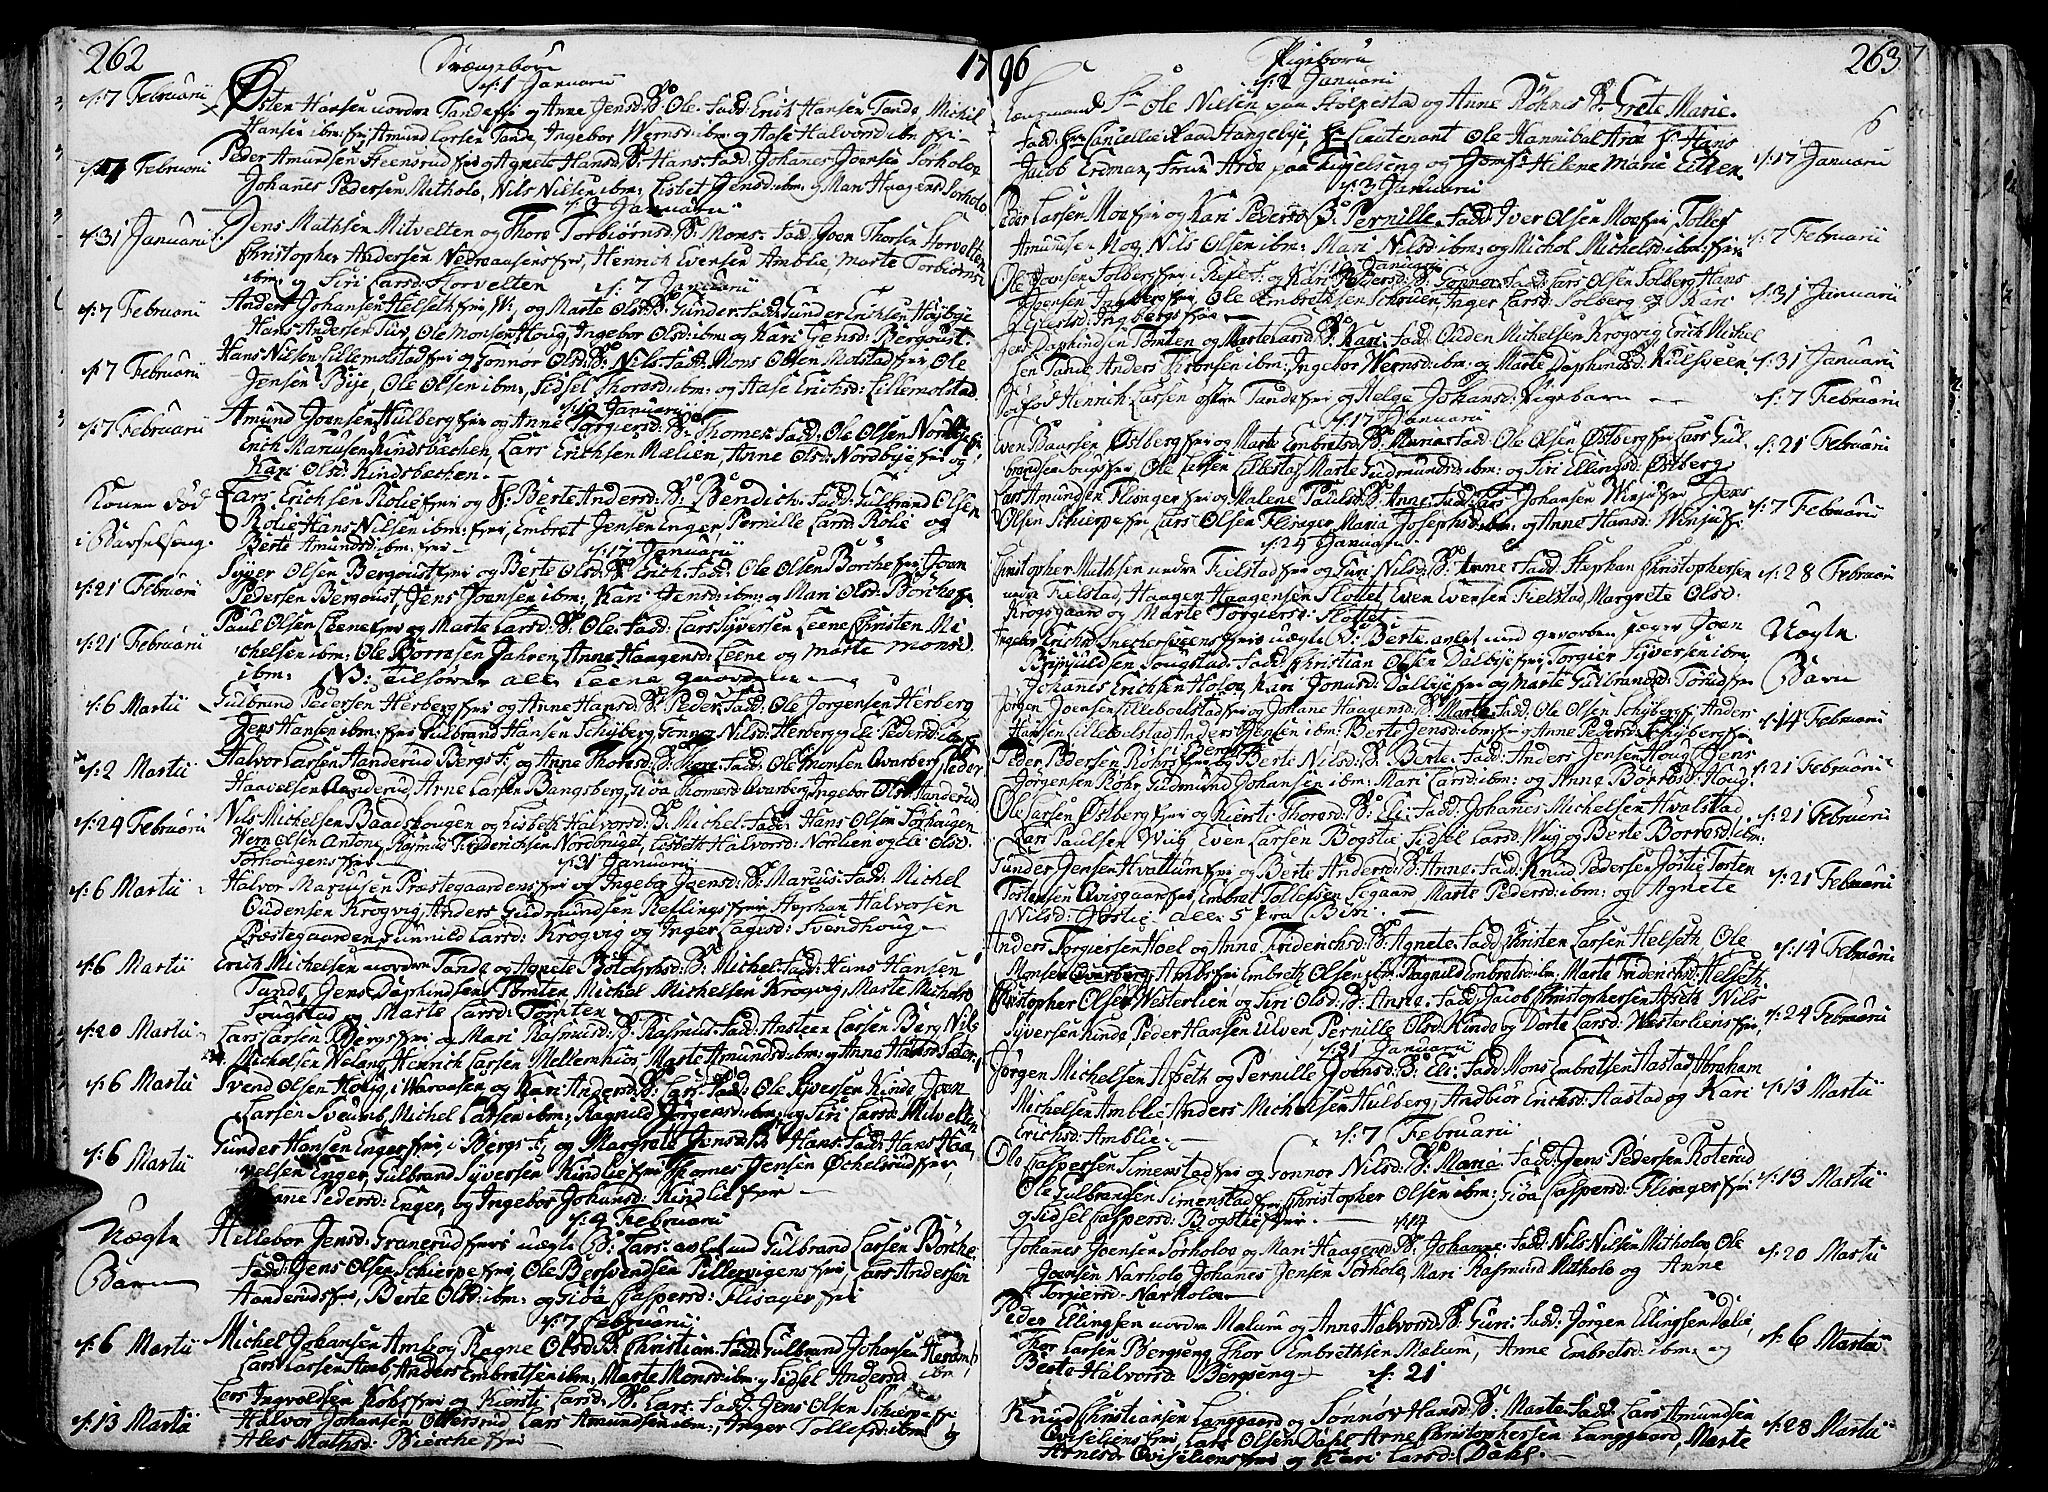 262 Drængebørn 17
d: 1 Januarii
d: 7 Februarii Østen Hansen nordre Tande fri og Anne Jensd: B: Ole. Fadd: Erich Hansen Tande, Michel
Hansen ibm: fri, Amund Larsen Tande, Ingebor Wernsd: ibm: og Aase Halvorsd: ibm fri
d: 7 Februarii Peder Amundsen Steensrud fri og Agnete Hansd: B: Hans. Fadd: Johanes Joensen Sørholo,
Johanes Pedersen Mitholo, Nils Nilsen ibm: Lisbet Jensd: ibm: og Mari Haagensd: Sørholo
d: 3 Januarii
d: 31 Januarii Jens Mathsen Mitvelten og Thore Torbiørnsd: B: Mons. Fadd: Joen Thorsen Storvelten
Christopher Andersen Nedraasens fri, Henrich Evensen Amblie, Marte Torbiørnsd:
ibm: og Siri Larsd: Storvelten d: 7 Januarii
d: 7 Februarii Anders Johansen Helseth fri og Marte Olsd: B: Gunder. Fadd: Gunder Erichsen Høysbye
Hans Andersen Tuv, Ole Monsen Houg, Ingebor Olsd: ibm: og Kari Jensd: Bergoust.
d: 7 Februarii Hans Nilsen Lillemolstad fri og Gonnor Olsd: B: Nils. Fadd: Mons Olsen Molstad fri Ole
Jensen Bye, Ole Olsen ibm: Sidsel Thorsd: ibm: og Aase Erichsd: Lillemolstad.
d: 10 Januarii
d: 7 Februarii Amund Joensen Hulberg fri og Anne Torgiersd: B: Thomes. Fadd: Ole Olsen Nordbye fri
Erich Mariusen Kindsbæchen, Lars Erichsen Mælien, Anne Olsd: Nordbye fri og
Kari Olsd: Kindsbechen.
Konen død Lars Erichsen Rolie fri og S: Berte Andersd: B: Bendich. Fadd: Gulbrand Olsen
i Barselseng Rolie Hans Nilsen ibm: fri, Embret Jensen Enger, Pernille Larsd: Rolie og
Berte Amundsd: ibm: fri d: 17 Januarii
d: 21 Februarii Syver Olsen Bergoust fri og Berte Olsd: B: Erich. Fadd: Ole Olsen Børche fri Joen
Pedersen Bergoust, Jens Joensen ibm: Kari Jensd: ibm: og Mari Olsd: Børche fri
d: 21 Februarii Paul Olsen Leene fri og Marte Larsd: B: Ole. Fadd: Lars Syversen Leene Christen Mi
chelsen ibm: Ole Børresen Jahren, Anne Haagensd: Leene og Marte Monsd:
ibm: NB: tilhører alle Leene
d: 6 Martii Gulbrand Pedersen Herberg fri og Anne Hansd: B: Peder. Fadd: Ole Jorgensen Herberg
Jens Hansen ibm: fri Gulbrand Hansen Schyberg Gonnor Nilsd: Herberg og Eli Pedersd: ibm: fri
d: 2 Martii Halvor Larsen Aanderud Bergs f: og Anne Thorsd: B: Thore. Fadd: Ole Monsen Qvarberg Peder
Haavelsen Aanderud, Arne Larsen Bangsberg, Giøa Thomesd: Qvarberg, Ingebor Olsd: Aanderud
d: 24 Februarii Nils Michelsen Baadshougen og Lisbeth Halvorsd: B: Michel. Fadd: Hans Olsen Torhougen
Wern Olsen Anton, Rasmus Friderichsen Nordbruget, Lisbeth Halvorsd: Nordlien og Eli Olsd:
Torhougens fri d: 31 Januarii
d: 6 Martii Halvor Mariusen Præstegaardens fri og Ingebor Joensd: B: Marius. Fadd: Michel
Oudensen Krogvig, Anders Gudmundsen Rellings fri, Stephan Halvorsen
Præstegaarden, Gunnild Larsd: Krogvig og Inger Lagesd: Svendhoug
d: 6 Martii Erich Michelsen nordre Tande og Agnete Bótolphsd: B: Michel. Fadd: Hans Hansen
Tande, Jens Daphindsen Tomten, Michel Michelsen Krogvig, Marte Michelsd
Tougstad og Marte Larsd: Tomten
d: 20 Martii Lars Larsen Bergs fri og Mari Rasmusd: B: Rasmus. Fadd: Ansteen Larsen Berg Nils
Michelsen Weland, Henrich Larsen Mellemkios, Marte Amundsd: ibm: og Anne Hansd: Sæter
d: 6 Martii Svend Olsen Houg, i Wraasen og Kari Andersd: B: Lars. Fadd: Ole Syversen Kinde Joen
Larsen Sveumb, Michel Larsen ibm: Ragnild Jørgensd: ibm: og Siri Larsd: Mitvelten
d: 6 Martii Gunder Hansen Enger fri, i Bergs f: og Margrete Jensd: B: Hans. Fadd: Hans Haa
velsen Enger, Gulbrand Syversen Kindlie fri Thomes Jensen Øchelsrud fri,
Anne Pedersd: Enger, og Ingebor Johansd: Kindlie fri
d: 4 Februarii
Uægte Hellebor Jensd: Granerud fri uægte B: Lars. avlet med Gulbrand Larsen Børche
Barn Fadd: Jens Olsen Schierpe fri, Ole Bersvendsen Pillervigens fri, Lars Andersen
Aanderuds fri, Berte Olsd: ibm: og Giøa Caspersd: Flisager fri
d: 7 Februarii
d: 6 Martii Michel Johansen Amb og Ragne Olsd: B: Christian. Fadd: Gulbrand Johansen
Lars Larsen Staf, Anders Embretsen ibm: Marte Monsd: ibm: og Sidsel Andersd: ibm
Lars Ingvoldsen Kobs fri og Kiersti Larsd: B: Lars. Fadd: Jens Olsen Schierpe fri
d: 13 Martii Halvor Johansen Ottersrud, Lars Amundsen ibm: Inger Tollefsd: ibm: og
Ales Mathsd: Bierche fri
96 Pigebørn 263
d: 2 Januarii
Lensmand Sr Ole Nilsen paa Stolpestad og Anne Røhnes B: Grete Marie.
Fadd: Hr Cancellie Raad Hangebye, Hr Lieutenant Ole Hannibal Aroe Sr Hans
d: 17 Januarii Jacob Erdman, Fruen Aroe paa Ringelseng og Jomfr Helene Marie Eilen.
d: 3 Januarii
Peder Larsen Moe fri og Kari Pedersd: B: Pernille. Fadd: Iver Olsen Moe fri, Tollef
d: 7 Februarii Amundsen Moe, Nils Olsen ibm: Mari Nilsd: ibm: og Michel Michelsd: ibm: fri
Januarii
Ole Joensen Solberg fri i Ringes: f: og Kari Pedersd: B: Gonnor. Fadd: Lars Olsen Solberg Hans
d: 31 Januarii Joensen Ingberg fri, Ole Embrethsen Schruen, Inger Larsd: Solberg og Kari
Gulestsd: Ingbergs fri
Jens Daphindsen Tomten og Marte Larsd: B: Kari. Fadd: Ouden Michelsen Krogvig, Erich Michel
d: 31 Januarii sen Tande Anders Thronsen ibm: Ingebor Wernsd: ibm: og Marte Daphindsd: Kulsveen
d: 7 Februarii Dødfød Henrich Larsen østen Tande fri og Helge Johansd: Pigebarn
d: 17 Januarii
d: 21 Februarii Even Baarsen Østberg fri og Marte Embretsd: B: Maria. Fadd: Ole Olsen Østberg fri Lars Gul
brandsen Sougs fri, Ole Larsen Lillestad, Marte Gudmundsd: ibm: og Siri Ellingsd: Østberg
d: 7 Februarii Lars Amundsen Flisager fri og Malene Paulsd: B: Anne. Fadd: Lars Johansen Winju fri Jens
Olsen Schierpe fri Lars Olsen Flisager, Maria Josephsd: ibm: og Anne Hansd: Winju fri
d: 24 Januarii
d: 28 Februarii Christopher Mathsen nedre Fielstad fri og Guri Nilsd: B: Anne. Fadd: Stephan Christophersen
nedre Fielstad, Haagen Haagensen Slottet, Even Evensen Fielstad, Margrete Olsd:
Krogsgaard og Marte Torgiersd: Slottet
Uægte Ingebor Erichsd: Snekersveens fri uægte B: Berte. avlet med gevorben Jæger Joen
Brynjuldsen Sougstad. Fadd: Christian Olsen Dalbye fri, Torgier Syversen ibm:
Barn Johanes Erichsen Holoe, Kari Jonasd: Dalbye fri og Marte Gulbrandsd: Torud fri
Jørgen Joensen Lilleboelstad fri og Johane Haagensd: B: Marte. Fadd: Ole Olsen Schyberg f: Anders
d: 14 Februarii Hansen Lilleboelstad Anders Jensen ibm: Berte Jensd: ibm: fri og Anne Pedersd: Schyberg fri
Peder Pedersen Røhrs fri og Berte Nilsd: B: Berte. Fadd: Anders Jensen Houg Jens
d: 21 Februarii Jørgensen Røhr, Gudmund Johansen ibm: Mari Larsd: ibm: og Anne Børresd: Houg.
d: 21 Februarii Ole Larsen Østberg fri og Kiersti Thoresd: B: Eli. Fadd: Johanes Michelsen Hvalstad
Lars Paulsen Wiig Even Larsen Bogstie Sidsel Larsd: Wiig og Berte Børresd: ibm:
Gunder Jensen Hvattum fri og Berte Andersd: B: Anne. Fadd: Knud Pedersen Jøstie Torsten
d: 21 Februarii Torstensen Qvisgaar fri, Embret Tollefsen Segaard Marte Pedersd: ibm: og Agnete
Nilsd: Jøstie alle 5 fra Biri.
d: 14 Februarii Anders Torgiersen Hoel og Anne Friderichsd: B: Agnete. Fadd: Christen Larsen Helseth Ole
Monsen Qvarberg, Ambs fri Embreth Olsen ibm: Ragnild Embretsd: ibm: Marte Friderichsd: Helseth
d: 24 Februarii Christopher Olsen Westerlien og Siri Olsd: B: Anne. Fadd: Jacob Christophersen Asseth Nils
Syversen Kinde, Peder Hansen Ulven, Pernille Olsd: Kinde og Dorte Larsd: Westerliens fri
d: 31 Januarii
Jørgen Michelsen Asseth og Pernille Joensd: B: Eli. Fadd: Mons Embretsen Aastad, Abraham
d: 13 Martii Michelsen Amblie, Anders Michelsen Hulberg, Andbiør Erichsd: Aastad og Kari
Erichsd: Amblie.
d: 7 Februarii
Ole Caspersen Simenstad fri og Gonnor Nilsd: B: Maria. Fadd: Jens Pedersen Roterud
d: 13 Martii Ole Gulbrandsen Simenstad fri Christopher Olsen ibm: Giøa Caspersd: Flisager fri
og Sidsel Caspersd: Bogstie fri. d: 14
Johanes Joensen Sørholoe og Mari Haagensd: B: Johanne. Fadd: Nils Nilsen Mitholoe Ole
d: 20 Martii Joensen Narholo, Johanes Jensen Sørholo, Mari Rasmusd Mitholo og Anne
Torgiersd: Narholoe
Peder Ellingsen nordre Malum og Anne Halvorsd: B: Guri. Fadd: Jørgen Ellingsen Dalie,
d: 6 Martii Thor Larsen Bergseng Thor Embrethsen Malum, Anne Embretsd: ibm: og
Berte Halvorsd: Bergseng d: 21
Knud Christiansen Langgaard og Sønnøv Hansd: B: Marte. Fadd: Lars Amundsen
d: 28 Martii Qviseliens fri, Lars Olsen Dahl Arne Christophersen Langgaard, Marte
Arnesd: Qviseliens fri og Kari Larsd: Dahl.